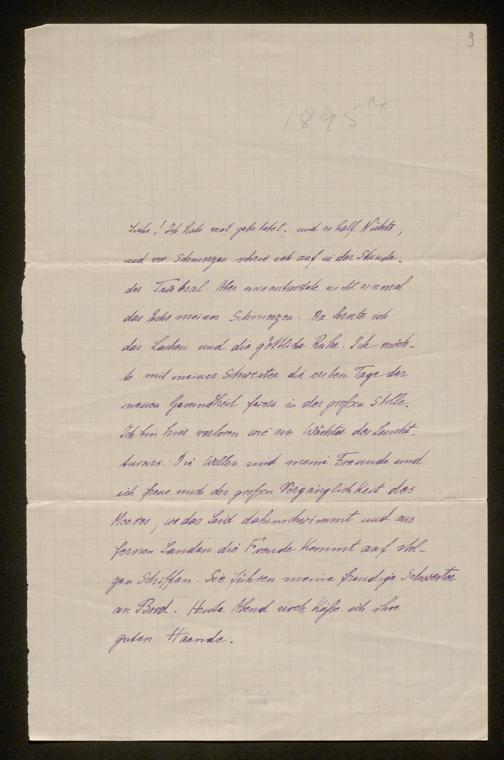 9
1895
Siehe! Ich habe viel gebetet, und es half Nichts,
und vor Schmerzen schrie ich auf in der Stunde
der Trübsal. Aber es antwortete nicht einmal
das Echo meiner Schmerzen. Da lernte ich
das Lachen und die göttliche Ruhe. Ich möch-
te mit meiner Schwester die ersten Tage der
neuen Gesundheit feiern in der großen Stille.
Ich bin hier verloren wie ein Wächter des Leucht-
turms. Die Wellen sind meine Freunde und
ich freue mich der großen Vergänglichkeit des
Meeres, wo das Leid dahinschwimmt und aus
fernen Landen die Freude kommt auf stol-
zen Schiffen. Sie führen meine freudige Schwester
an Bord. Heute Abend noch küße ich ihre
guten Haende.